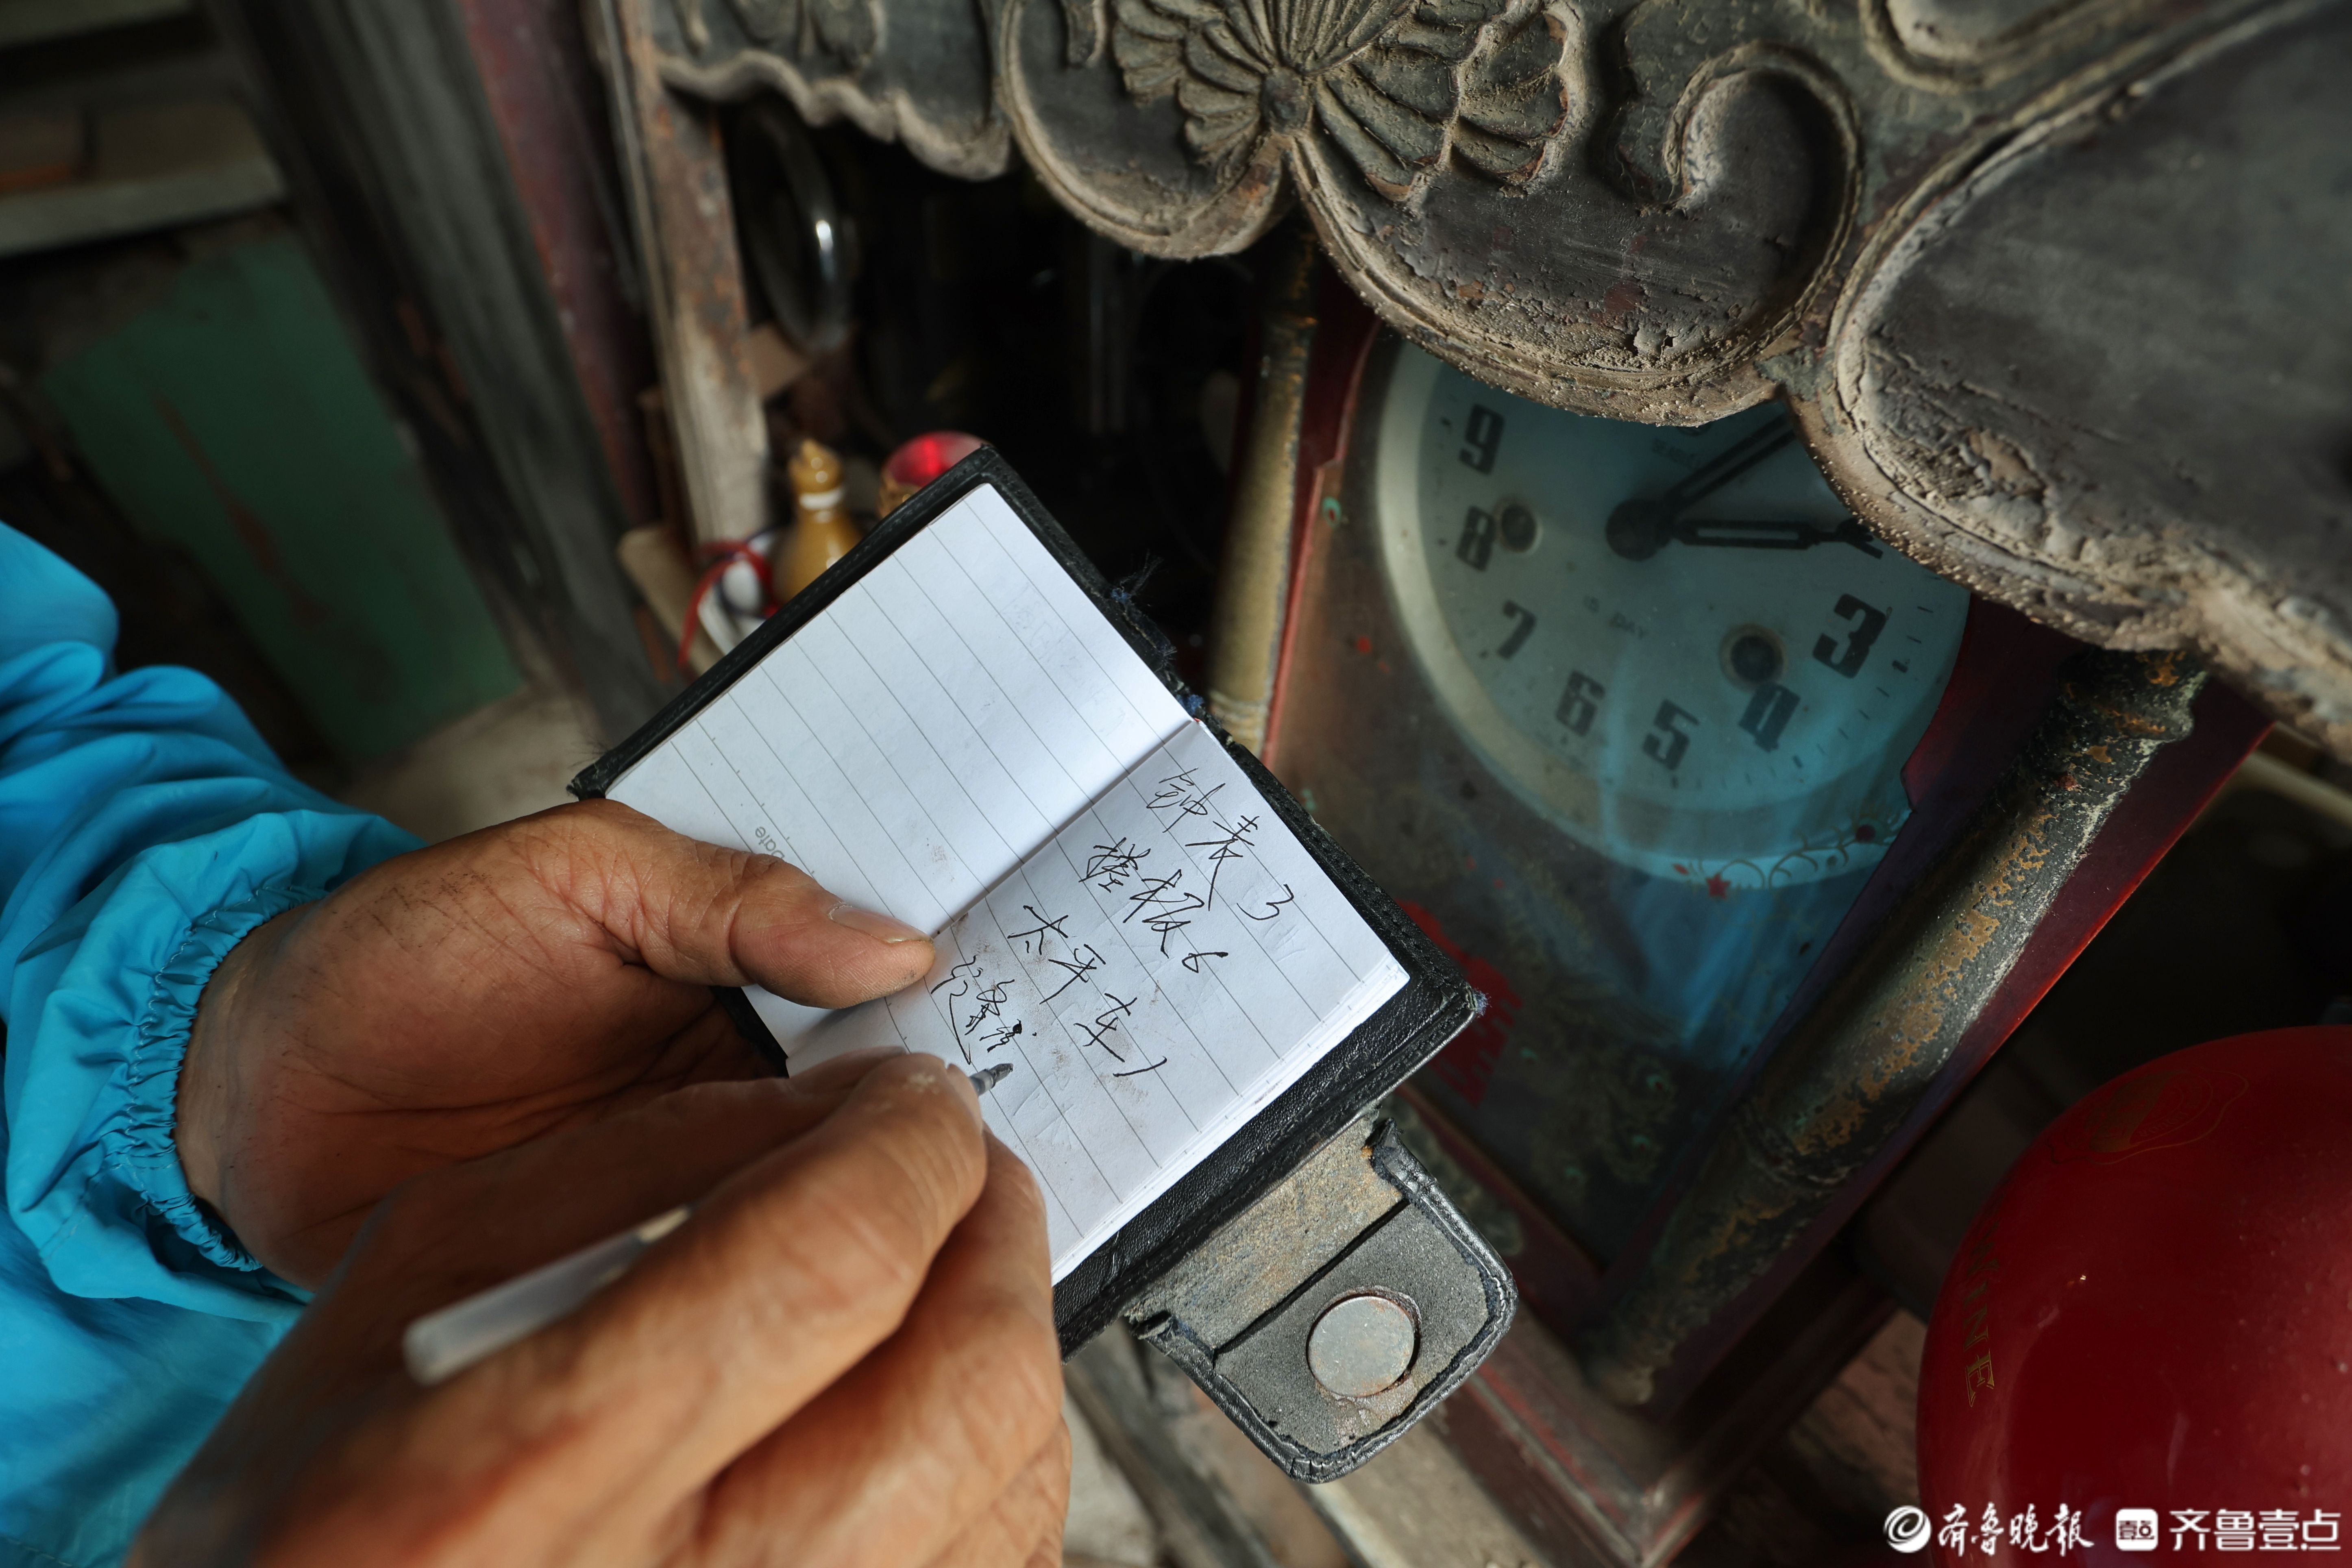 钟表3
楼板6
太平车1
Date
9
8
7
6
5
4
3
DAY
KINE
齐鲁晚报 壹点 齐鲁壹点